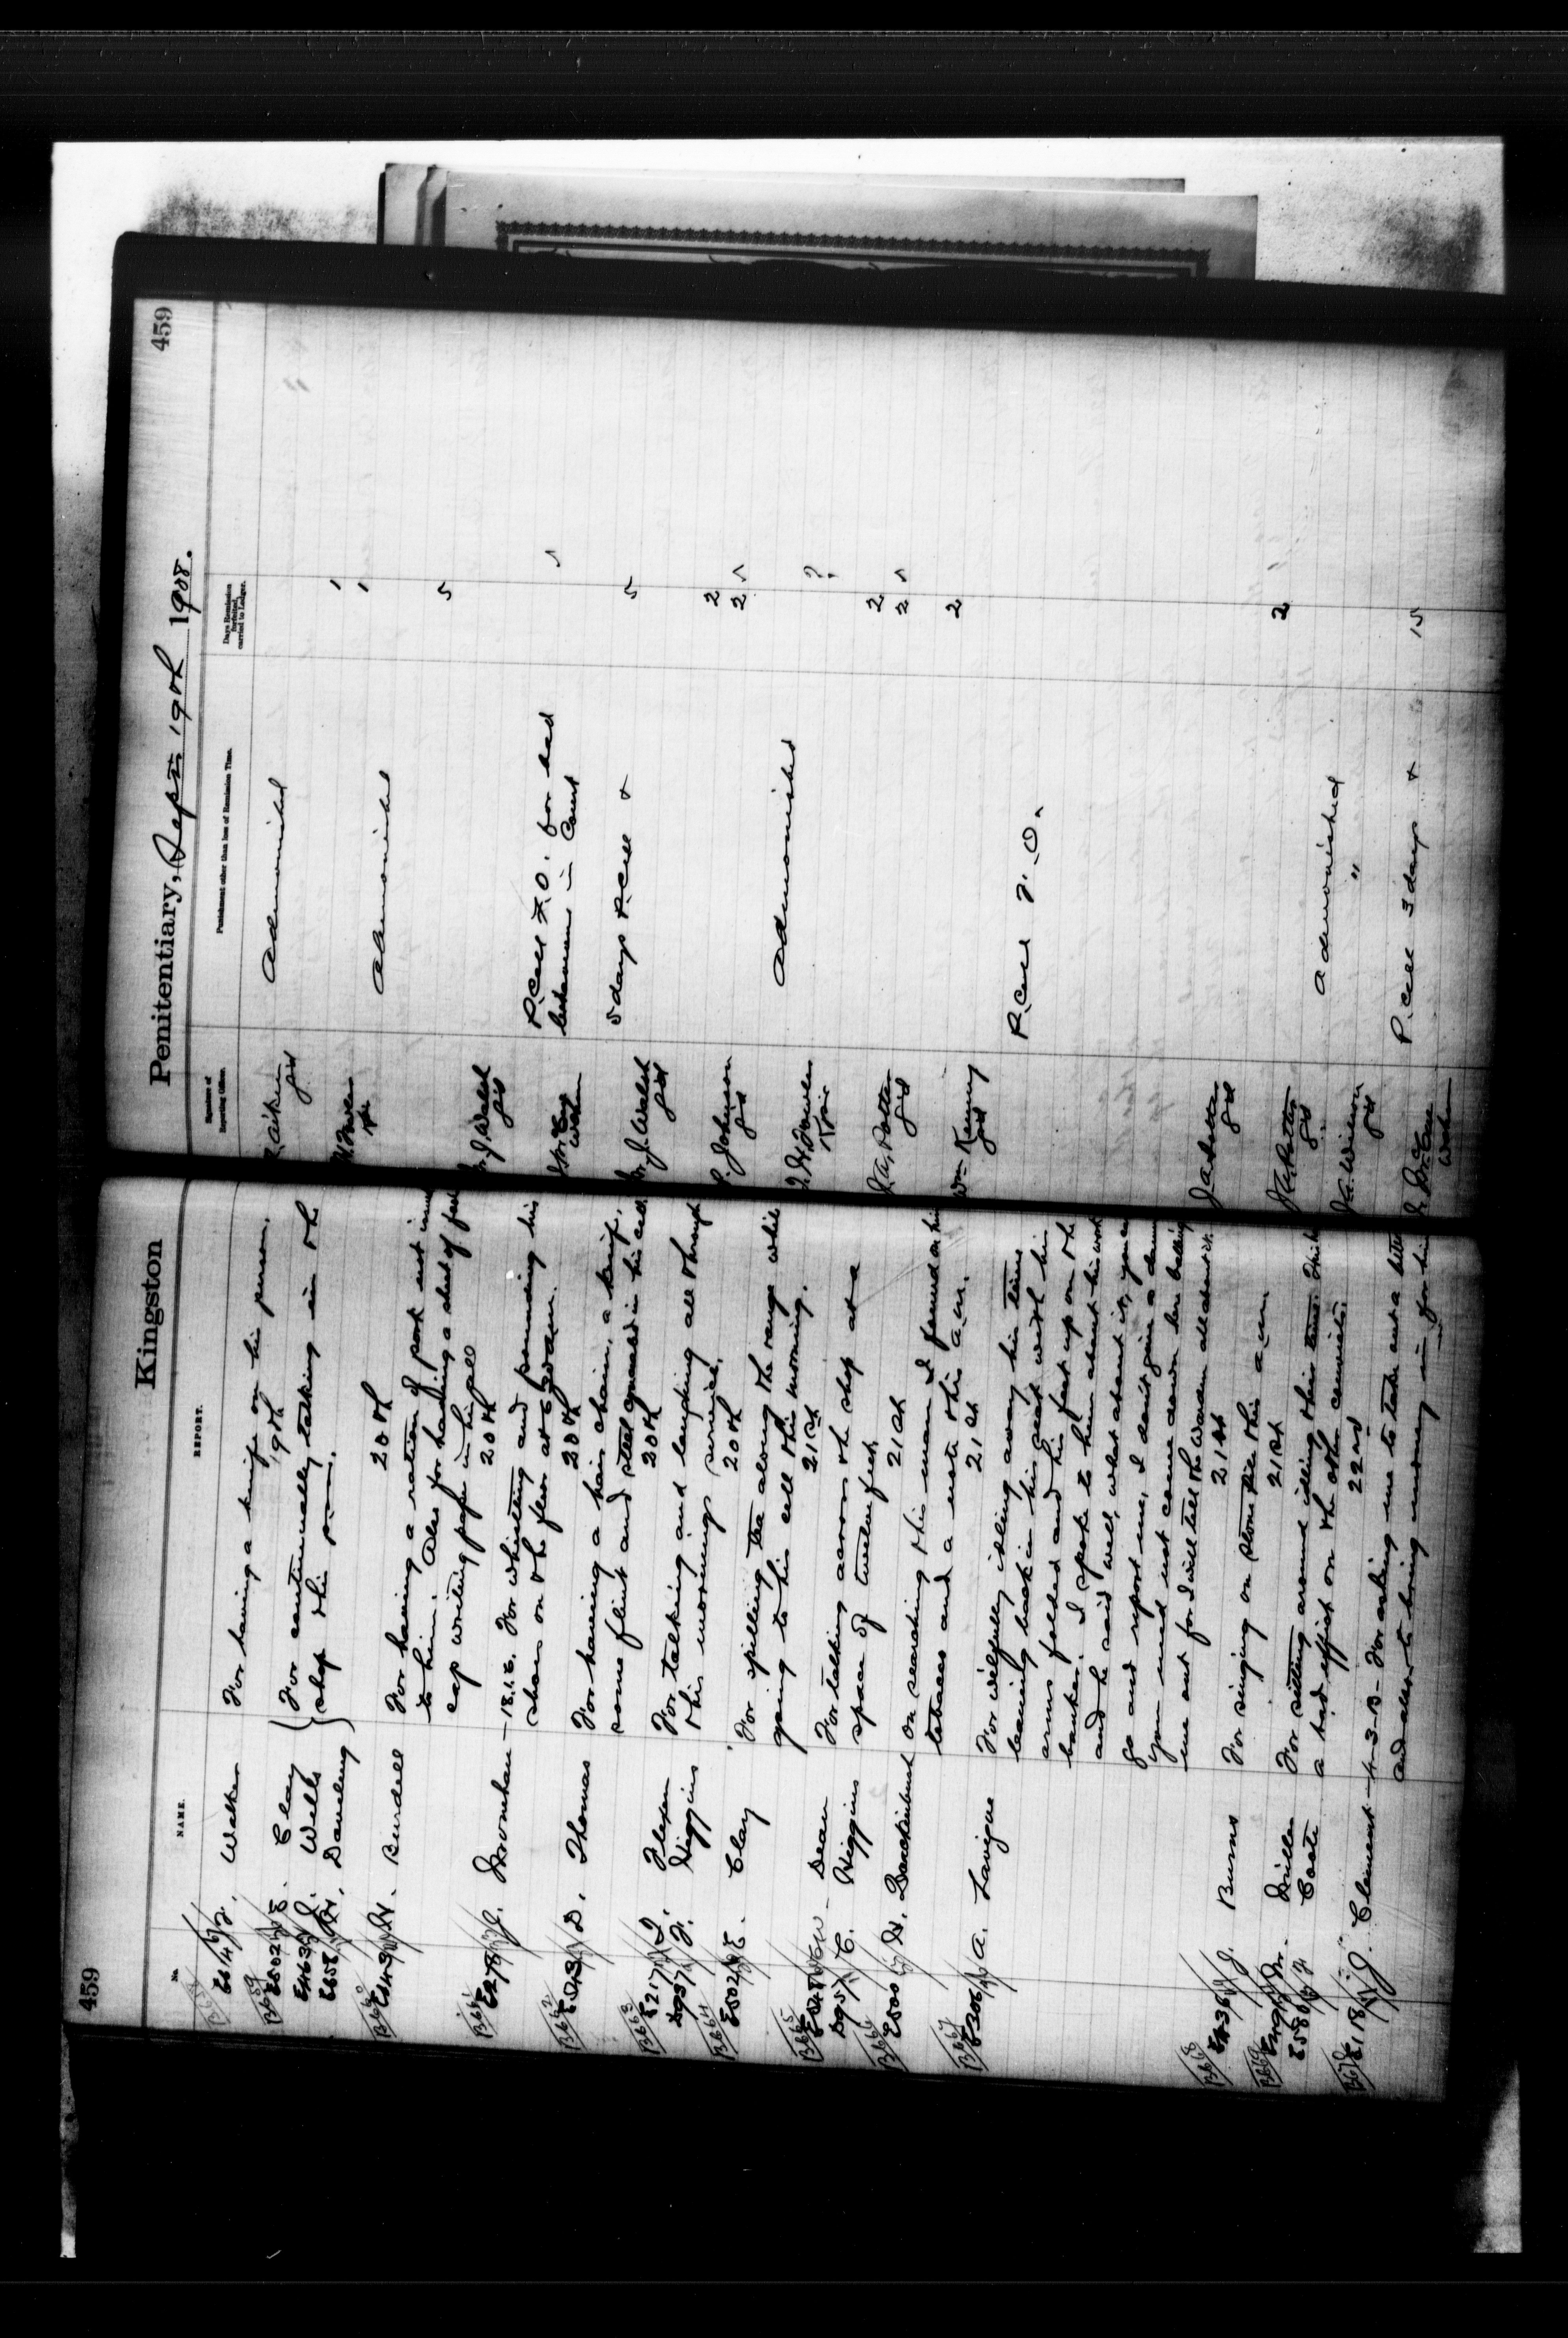 459
Kingston
Penitentiary, Sept 19th 1908.
459
No.
NAME.
REPORT.
Signature of Reporting Officer.
Punishment other than loss of Remission Time.
Days Remission forfeited, carried to Ledger.
Walker For having a knife on his person. Aiken gd Admonished
19th
B659
E502 E. Clay For continually talking in the W. Fowler 1
E463 J. Wells shop this p.m. 1
E65 H. Admonished
20th
B660
E443 H. Burdell For having a ration of pork not issued J. Walsh gd 5
to him. Also for having a sheet of fools
cap writing paper in his cell
20th
B661
J. Monohan - 18.1.E. For whistling and pounding his P. Cell F.O. for bad
shoes on the floor at 6 a.m. behaviour in Court
20th
B662
E543 D. Thomas For having a hair chain, a knife, J. Walsh gd 5 days P. Cell + 5
some flint and steel concealed in his cell
20th
B663
E217 J. For talking and laughing all through P. Johnson gd 2
D957 F. Higgins this mornings service. 2
20th
B664
E502 E. Clay For spilling tea along the range while Fowler Admonished
going to his cell this morning.
21st
B665
Dean For talking across the shop at a J. A. Potter gd 2
D957 C. Higgins space of twelve feet 2
21st
B666
E500 H. On searching this man I found on him Wm Kenny gd 2
tobacco and a note this a.m.
21st
B667
E306 A. Lavigne For wilfully idling away his time P. Cell F.O.
leaning back in his seat with his
arms folded and his feet up on the
banker. I spoke to him about his work
and he said well, what about it, you can
go and report me, I don't give a damn
you need not come down here bulling
me out for I will tell the Warden all about it. J. A. Potter gd
21st
B668
E436 J. Burns For singing on stone pile this a.m. J. A. Potter gd 2
21st
B669
Miller For sitting around idling their time. This has J. A. Wilson gd Admonished
E580 Coate a bad effect on the other convicts. "
22nd
B670
E118 J. Clement - 4-3-B- For asking me to take out a letter P. Cell 3 days + 15
and also to bring money in for him